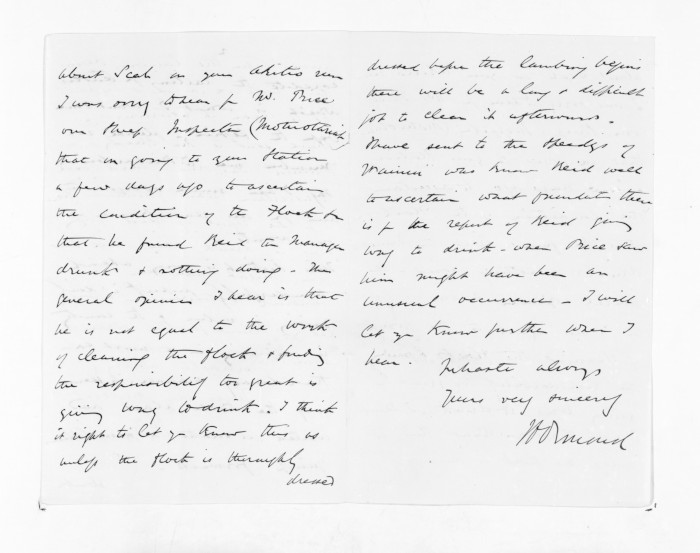 about Scab on your Akitio run
I was sorry to hear fr Mr. Price
our Sheep Inspector (Motuotaria)
that on going to your Station
a few days ago to ascertain
the condition of the Flock &c
that he found Reid the Manager
drunk & nothing doing - The
general opinion I hear is that
he is not equal to the work
of cleaning the flock & finding
the responsibility too great is
giving way to drink. I think
it right to let you know this as
unless the flock is thoroughly
dressed
dressed before the lambing begins
there will be a long & difficult
job to clear it afterwards.
I have sent to the
who know Reid well
to ascertain what foundation there
is for the report of Reid giving
way to drink - when Price saw
him might have been an
unusual occurrence - I will
let you know further when I
hear.
In haste always
Yours very sincerely
JD Ormond